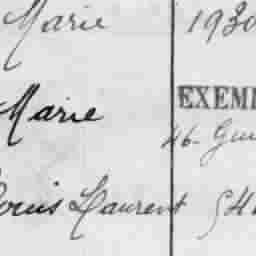 Marie 1930
Marie EXEM
46- Gui
Louis Laurent 54